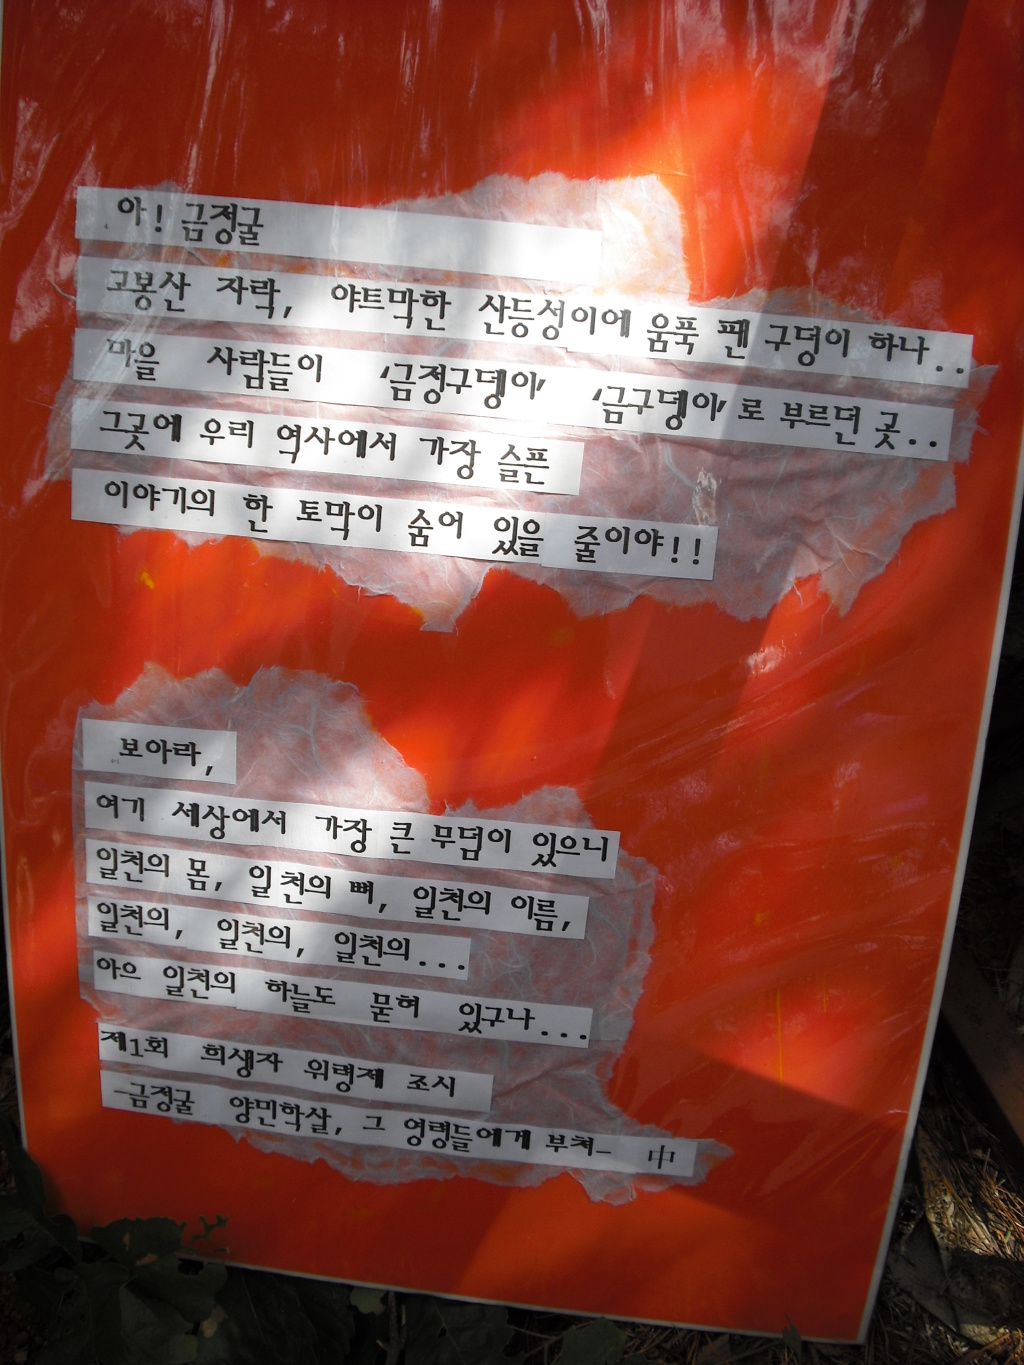 아! 금정굴
고봉산 자락, 야트막한 산등성이에 움푹 팬 구덩이 하나..
마을 사람들이 '금정구뎅이' '금구뎅이'로 부르던 곳..
그곳에 우리 역사에서 가장 슬픈
이야기의 한 토막이 숨어 있을 줄이야!!
보아라,
여기 세상에서 가장 큰 무덤이 있으니
일천의 몸, 일천의 뼈, 일천의 이름,
일천의, 일천의, 일천의...
아으 일천의 하늘도 묻혀 있구나...
제1회 희생자 위령제 조시
-금정굴 양민학살, 그 영령들에게 부쳐- 中